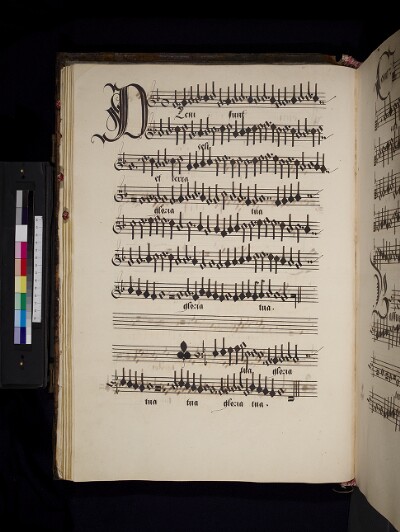 Pleni sunt
celi
et terra
gloria tua
gloria tua.
tua gloria
tua tua gloria tua.